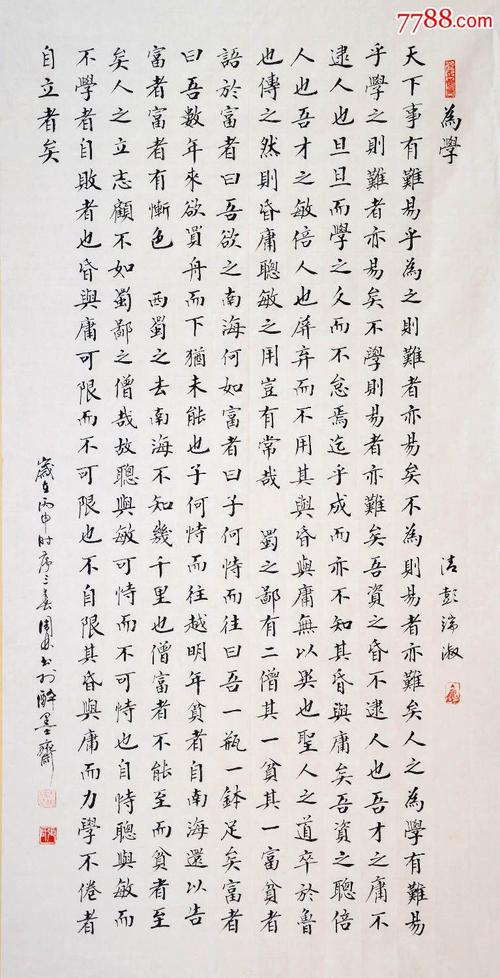 7788.com
為學
清 彭端淑
天下事有難易乎為之則難者亦易矣不為則易者亦難矣人之為學有難易
乎學之則難者亦易矣不學則易者亦難矣吾資之昏不逮人也吾才之庸不
逮人也旦旦而學之久而不怠焉迄乎成而亦不知其昏與庸矣吾資之聰倍
人也吾才之敏倍人也屏弃而不用其與昏與庸無以異也聖人之道卒於魯
也傳之然則昏庸聰敏之用豈有常哉 蜀之鄙有二僧其一貧其一富貧者
語於富者曰吾欲之南海何如富者曰子何恃而往曰吾一瓶一鉢足矣富者
曰吾數年來欲買舟而下猶未能也子何恃而往越明年貧者自南海還以告
富者富者有慚色 西蜀之去南海不知幾千里也僧富者不能至而貧者至
矣人之立志顧不如蜀鄙之僧哉故聰與敏可恃而不可恃也自恃聰與敏而
不學者自敗者也昏與庸可限而不可限也不自限其昏與庸而力學不倦者
自立者矣
歲在丙申時序三春周書於醉墨齋